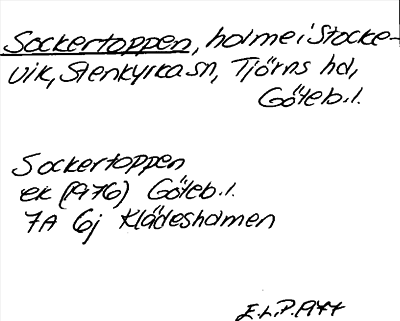 Sockertoppen, holme i Stocke-
vik, Stenkyrka sn, Tjörns hd,
Göteb.l.
Sockertoppen
ek (1976) Göteb.l.
7A 6j Klädesholmen
E.L.P. 1977